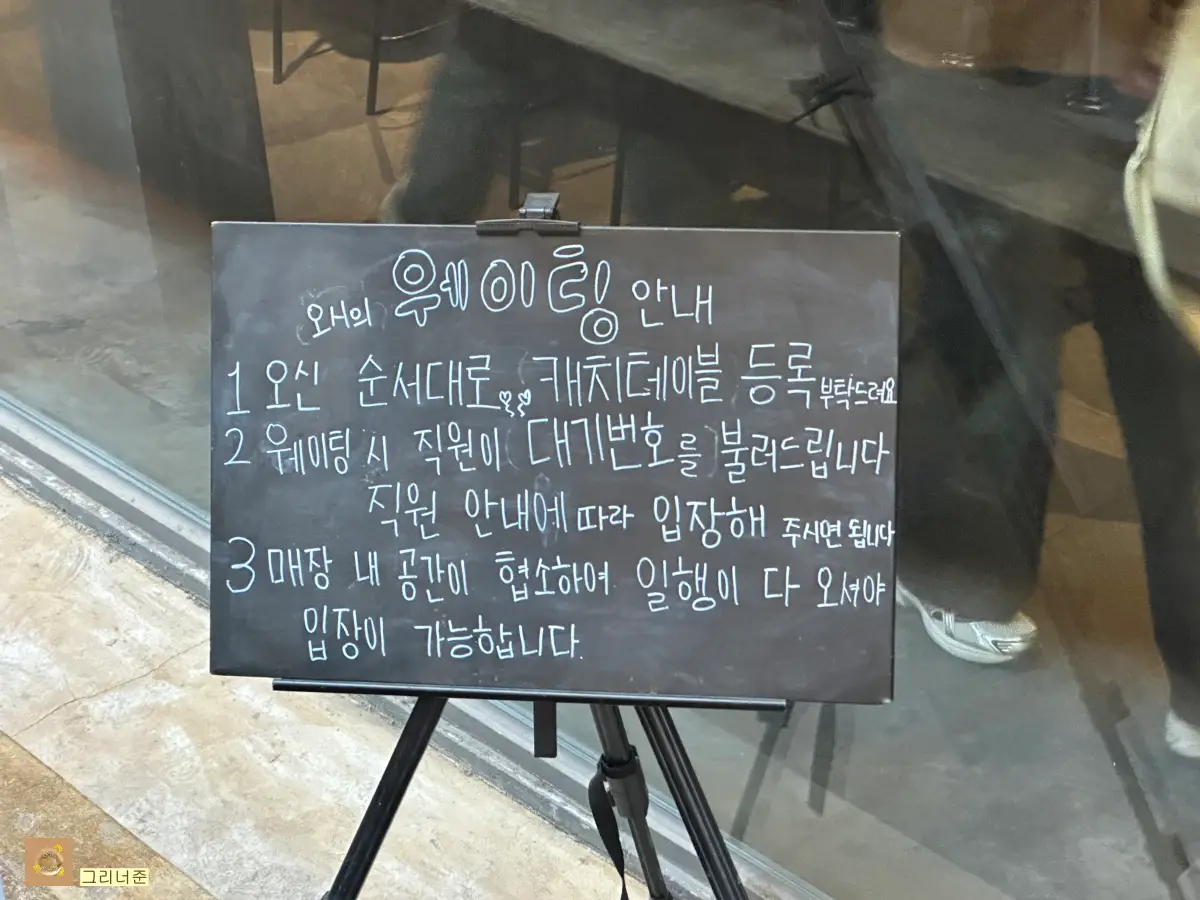 오시의 웨이팅 안내
1 오신 순서대로 캐치테이블 등록 부탁드려요
2 웨이팅 시 직원이 대기번호를 불러드립니다
직원 안내에 따라 입장해 주시면 됩니다
3 매장 내 공간이 협소하여 일행이 다 오셔야
입장이 가능합니다.
그리너준